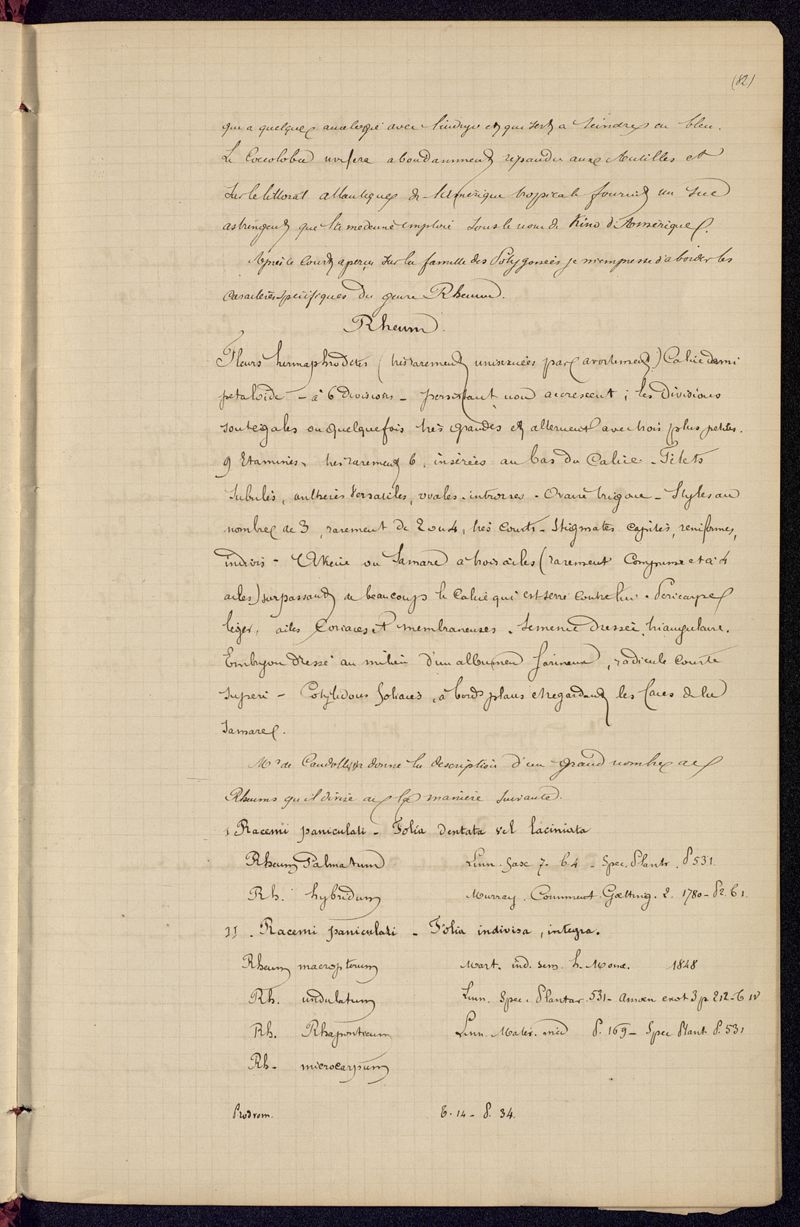 (82)
que a quelques analogie avec l'indigo et qui sert a teindre en bleu.
Le Coccoloba uvifera abondamment repandu aux Antilles et
sur le littoral atlantique de l'Amérique tropicale fournit un suc
astringent que la medecine emploi sous le nom de Kino d'Amérique.
Après le court aperçu sur la famille des Polygonées je m'empresse d'aborder les
caractères spécifiques du genre Rheum.
Rheum.
Fleurs hermaphrodites (très rarement unisexuées par avortement) Calice demi
petaloïde - à 6 divisions - persistant non accrescent ; les divisions
sont égales ou quelquefois très grandes et alternent avec trois plus petites.
9 Etamines, très rarement 6, insérées au bas du Calice - Filets
subulés, anthères versatiles, ovales - introrses - Ovaire trigone - Styles au
nombre de 3, rarement de 2 ou 4, très courts - Stigmates capités, reniformes,
indivis - Akène ou Samare à trois ailes (rarement comprimé et à 4
ailes) surpassant de beaucoup le Calice qui est serré contre lui. Pericarpe
léger, ailes Coriaces et membraneuses. Semence dressée, triangulaire.
Embryon dressé au milieu d'un albumen farineux, radicule courte
supère - Cotylédons foliacés, à bords plans et regardant les faces de la
Samare.
Mr de Candolle donne la description d'un grand nombre de
Rheums qu'il divise de la manière suivante.
1 Racemi paniculati - Folia dentata vel laciniata
Rheum Palmatum Linn. fasc 7. t. 4 - Spec. Plantr. P. 531.
Rh. hybridum Murray. Comment. Gœtting. 2. 1780 - P. 82. t. 1.
II. Racemi paniculati - Folia indivisa, integra.
Rheum macropterum Mart. ind. sem. h. Mona. 1848
Rh. undulatum Linn. Spec. Plantar. 531 - Amœn exot 3 p 212 - t. IV
Rh. Rhaponticum Linn. Mater. med P. 169 - Spec Plant. P. 531
Rh. microcarpum
Prodrom. t. 14 - P. 34.